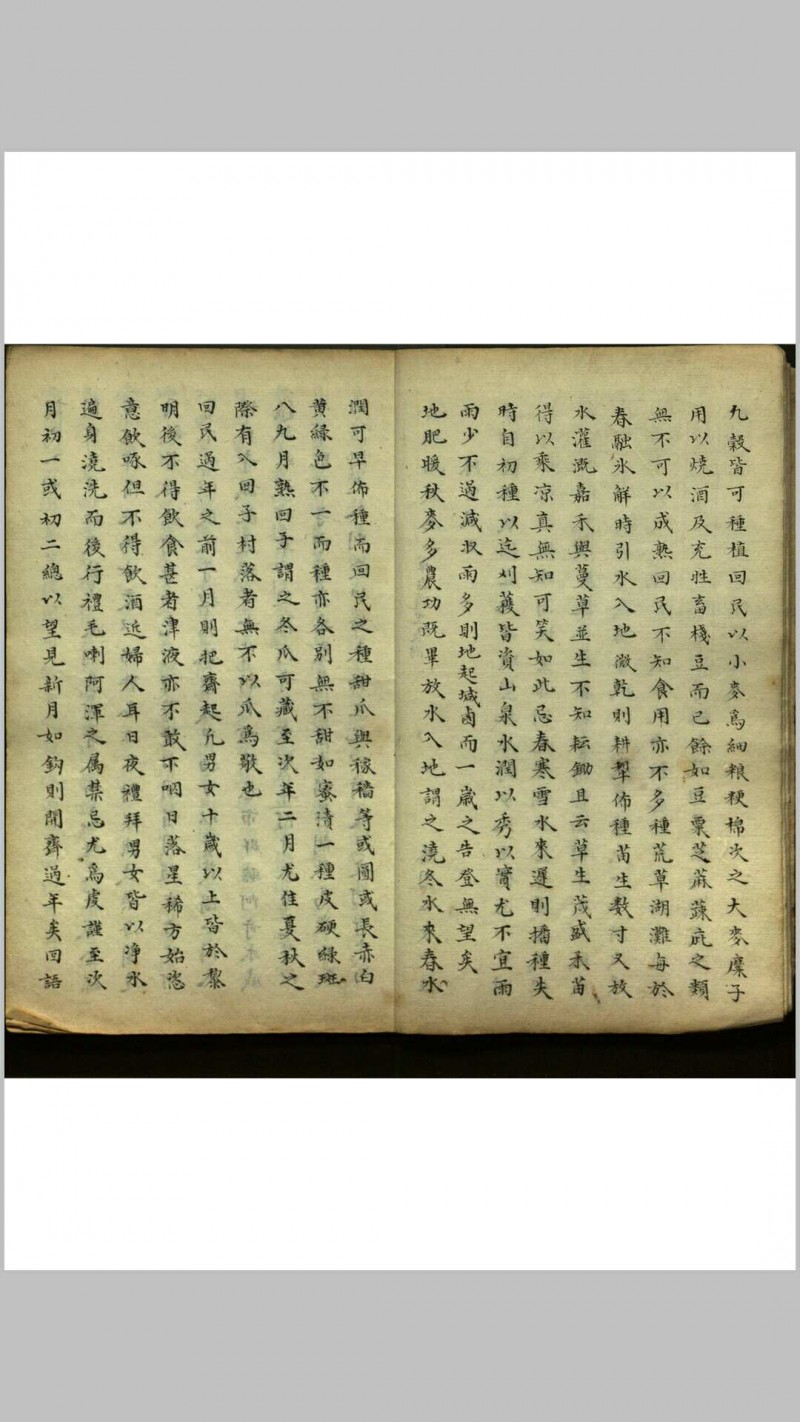 九穀皆可種植回民以小麥為細粮粳棉次之大麥糜子
用以燒酒及充牲畜棧豆而已餘如豆粟芝蔴蔬蓏之類
無不可以成熟回民不知食用亦不多種荒草湖灘每於
春融氷解時引水入地微乾則耕犂佈種苗生數寸又放
水灌溉嘉禾與蔓草並生不知耘鋤且云草生茂盛禾苗
得以乘凉真無知可笑如此忌春寒雪水來遲則播種失
時自初種以迄刈穫皆資山泉水潤以秀以實尤不宜雨
雨少不過減收雨多則地起堿鹵而一歲之告登無望矣
地肥暖秋麥多農功既畢放水入地謂之澆冬水來春水
潤可早佈種而回民之種甜瓜與稼穡等或圓或長赤白
黃綠色不一而種亦各別無不甜如蜜漬一種皮硬綠斑
八九月熟回子謂之冬瓜可藏至次年二月尤佳夏秋之
際有入回子村落者無不以瓜爲敬也
回民過年之前一月則把齋起凡男女十歲以上皆於黎
明後不得飲食甚者津液亦不敢下咽日落星稀方始恣
意飲啄但不得飲酒近婦人耳日夜禮拜男女皆以淨水
遍身澆洗而後行禮毛喇阿渾之属禁忌尤爲虔謹至次
月初一或初二總以望見新月如鈎則開齋過年矣回語